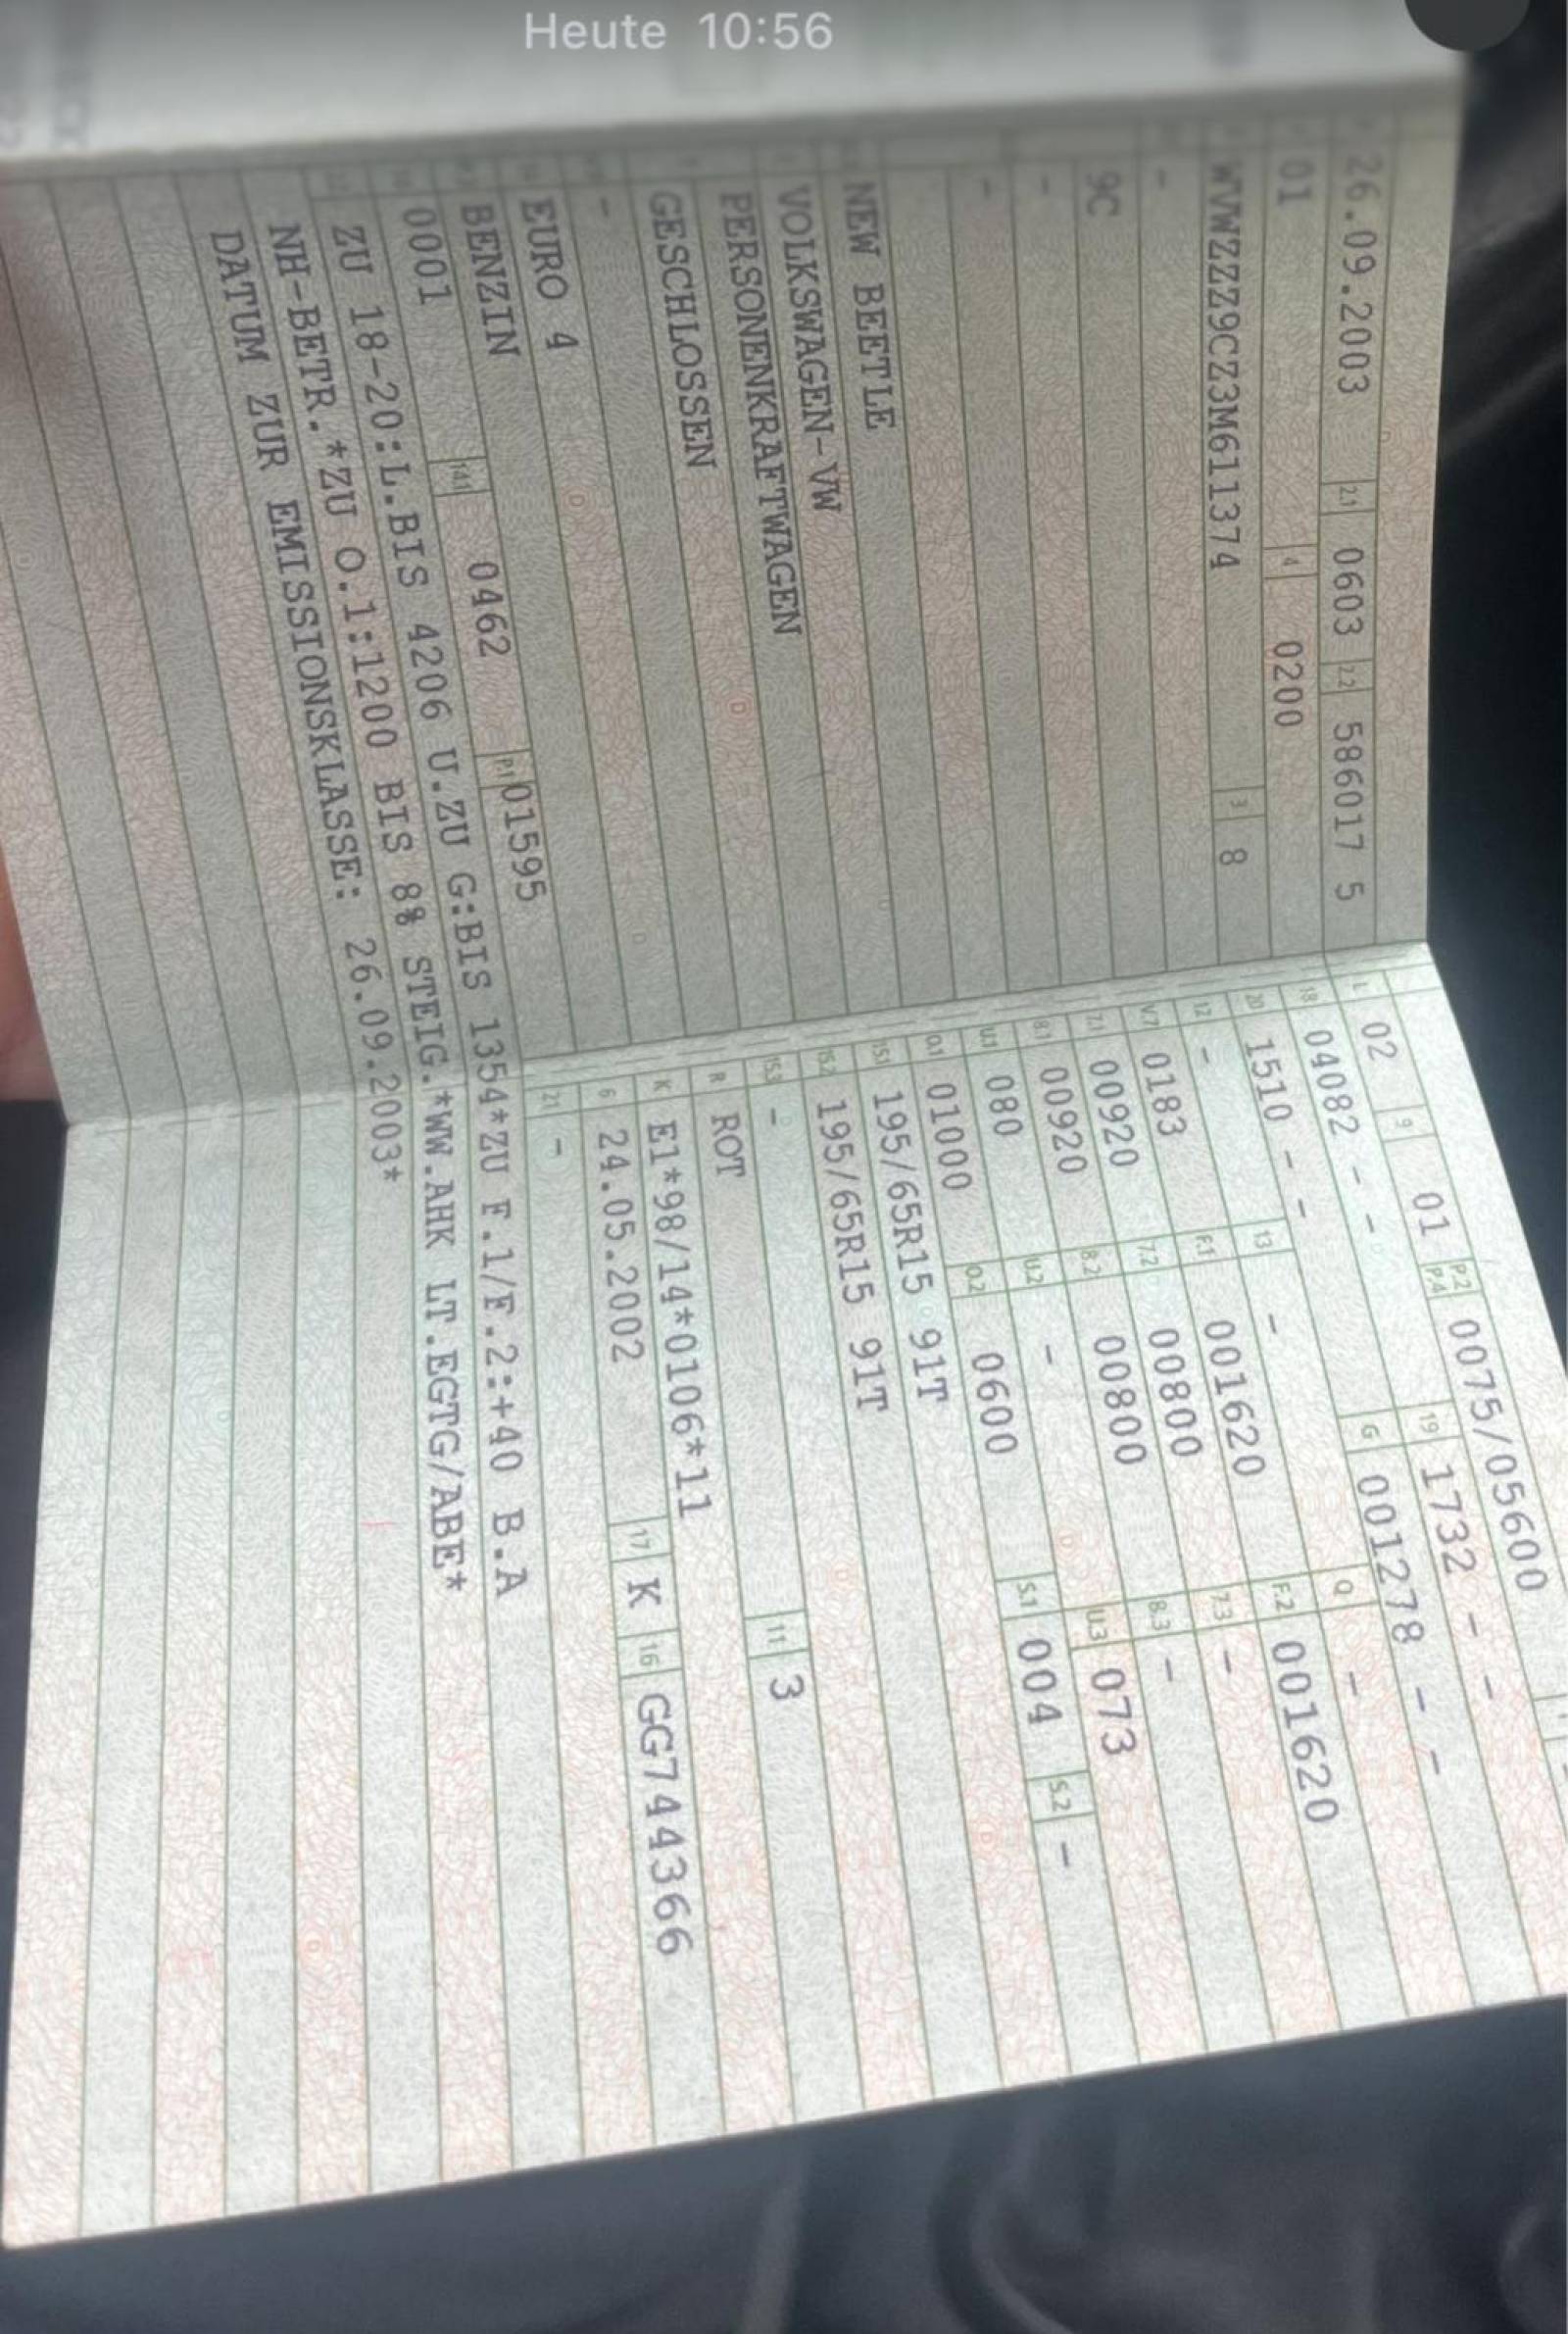 Heute 10:56
26.09.2003 2.1 0603 2.2 586017 5
01 4 0200
WVWZZZ9CZ3M611374 3 8
-
9C
-
-
NEW BEETLE
VOLKSWAGEN-VW
PERSONENKRAFTWAGEN
GESCHLOSSEN
-
EURO 4
BENZIN P.1 01595
0001 14.1 0462
L 02 9 01 P.2 P.4 0075/05600
18 04082 - - 19 1732 - -
20 1510 - - G 001278 - -
12 - 13 - Q -
V.7 0183 F.1 001620 F.2 001620
7.1 00920 7.2 00800 7.3 -
8.1 00920 8.2 00800 8.3 -
U.1 080 U.2 - U.3 073
O.1 01000 O.2 0600 S.1 004 S.2 -
15.1 195/65R15 91T
15.2 195/65R15 91T
15.3 -
R ROT 11 3
K E1*98/14*0106*11
6 24.05.2002 17 K 16 GG744366
21 -
ZU 18-20:L.BIS 4206 U.ZU G:BIS 1354*ZU F.1/F.2:+40 B.A
NH-BETR.*ZU O.1:1200 BIS 8% STEIG.*WW.AHK LT.EGTG/ABE*
DATUM ZUR EMISSIONSKLASSE: 26.09.2003*